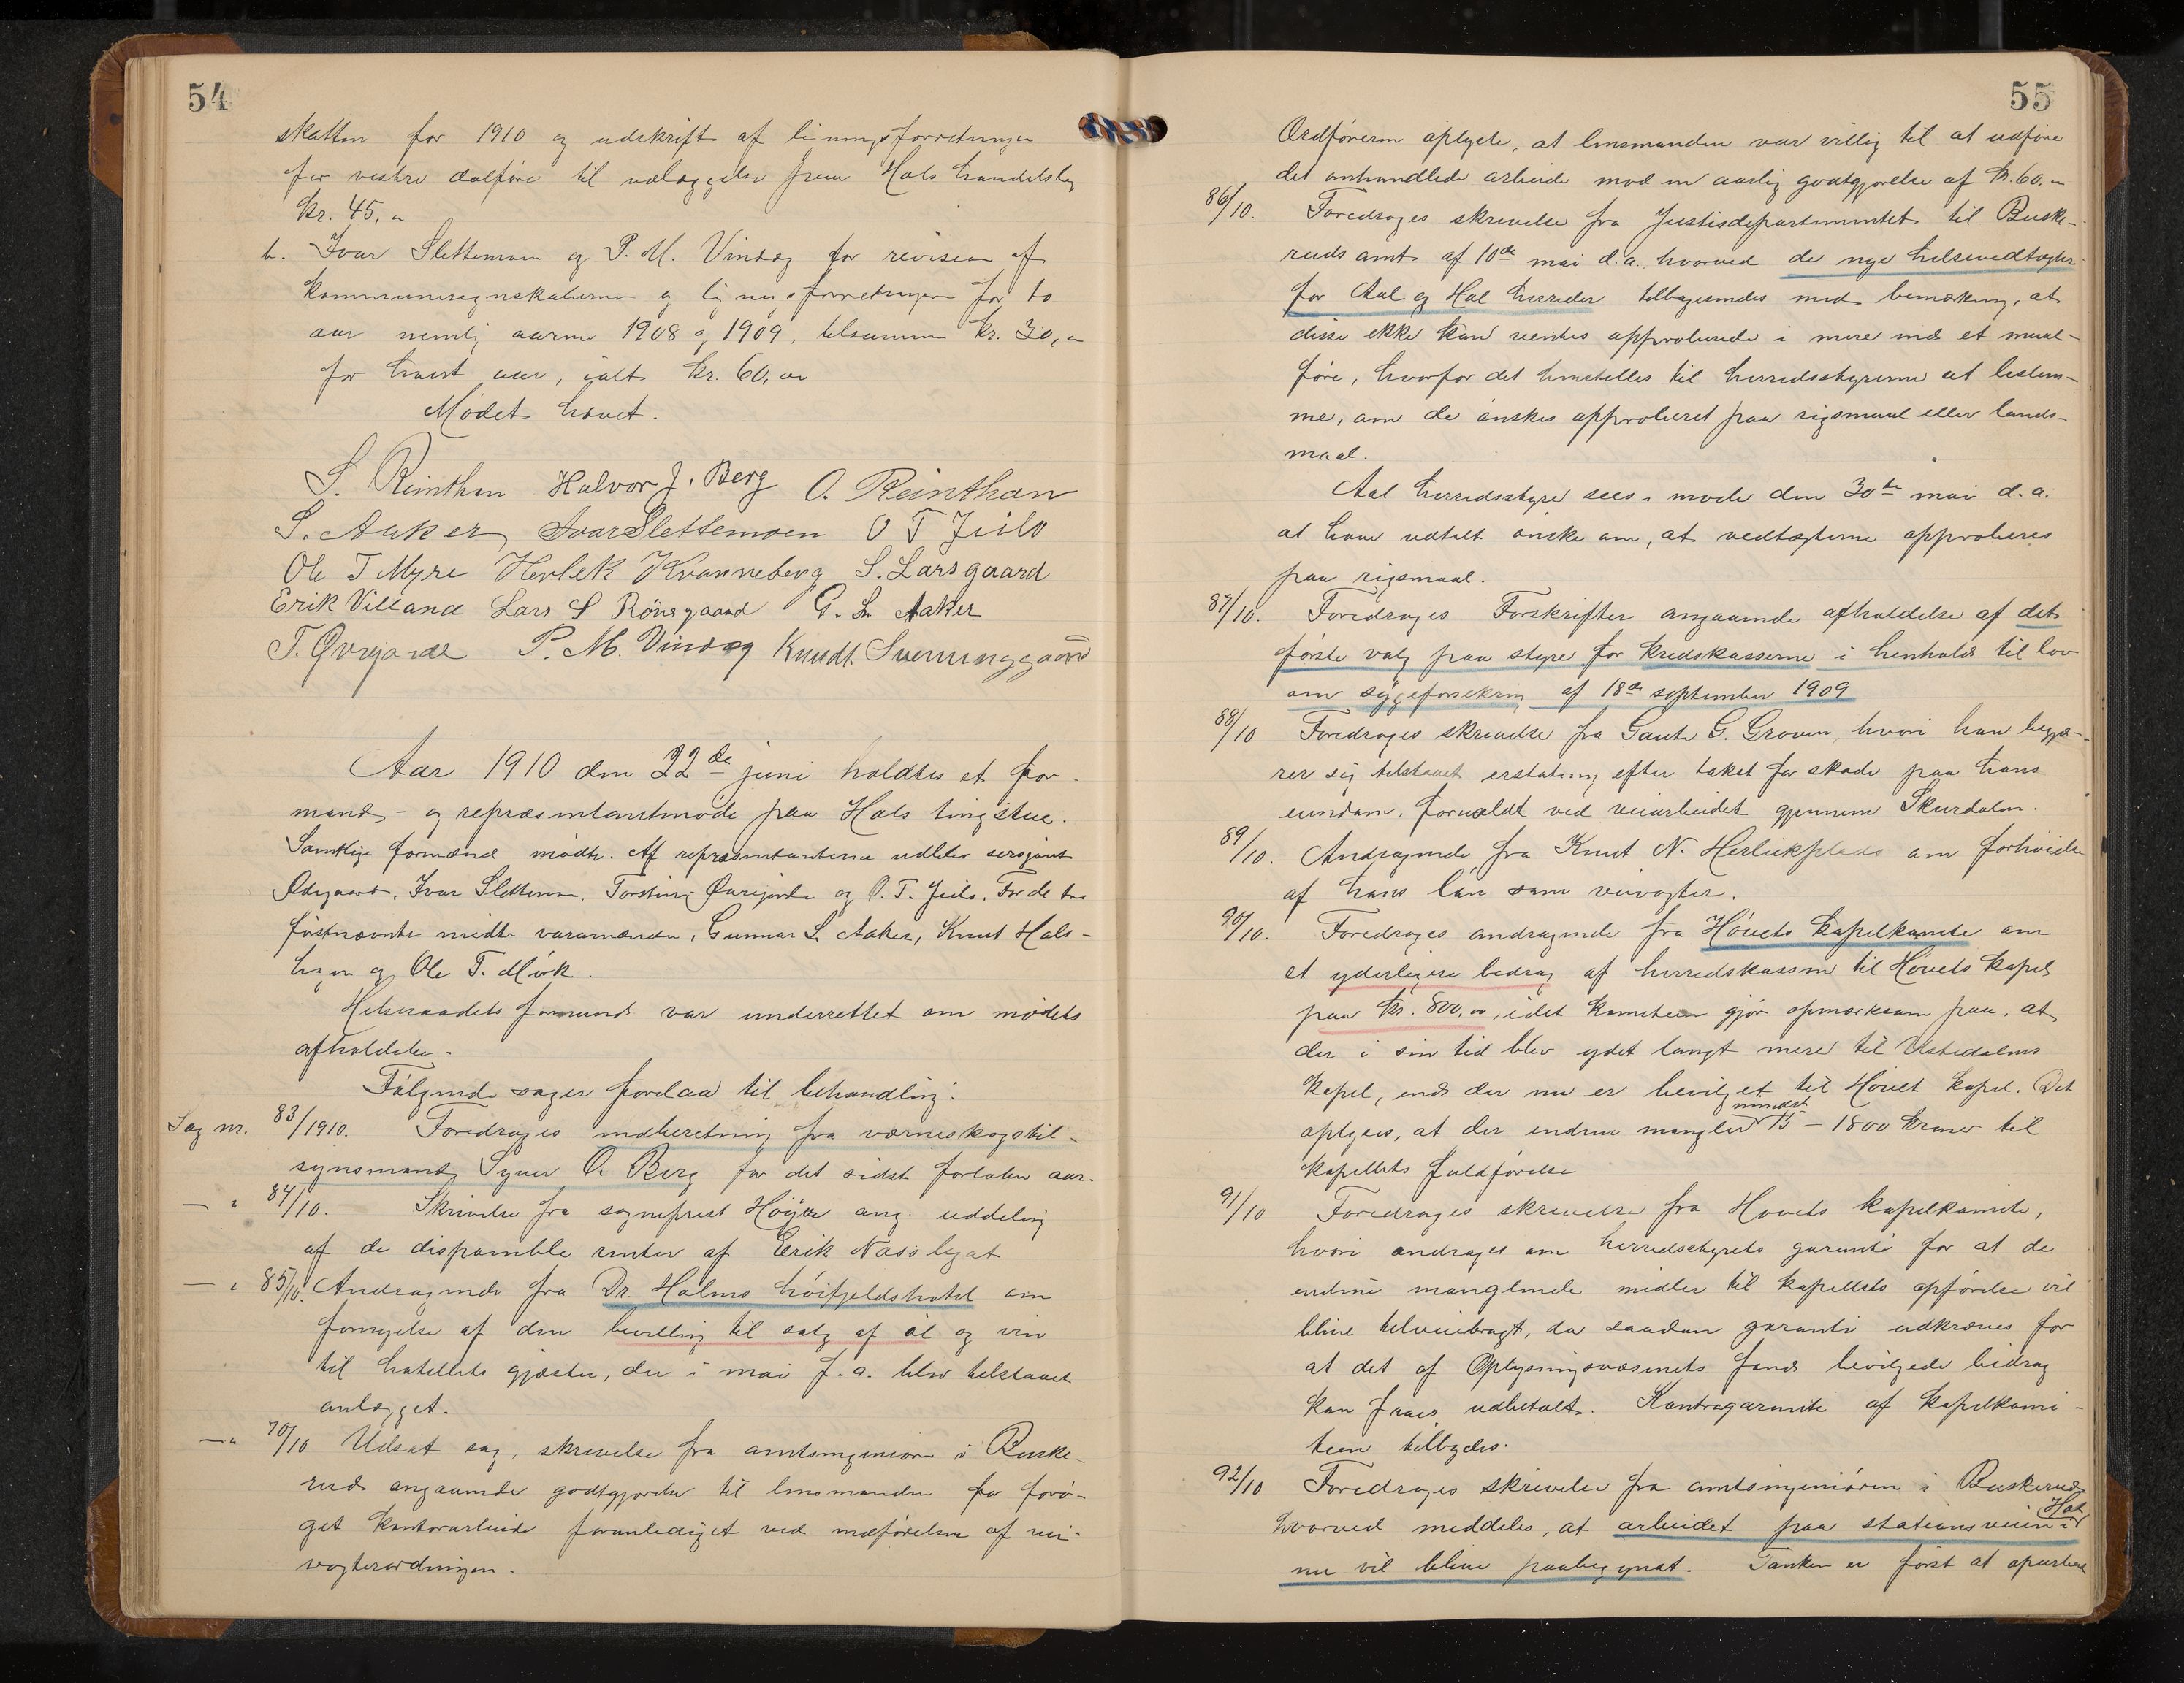 54
skatten for 1910 og udskrift af ligningsforretningen
for vestre dalføre til udlæggelse paa Hols handelslag
kr. 45,00
b. Ivar Slettemoen og P. M. Vindeg for revision af
kommuneregnskaberne og ligningsforretningen for to
aar nemlig aarene 1908 og 1909, tilsammen kr. 30,00
for hvert aar, ialt kr. 60,00
Mødet hævet.
S. Reinthon Halvor J. Berg O. Reinthan
S. Aaker Ivar Slettemoen O T Jeilo
Ole T Myre Herlek Kvanneberg S. Larsgaard
Erik Villand Lars S Rønsgaard G. L. Aaker
T. Øvrejorde P. M. Vindeg Knudt Sverringgaard
Aar 1910 den 22de juni holdtes et for-
mands- og repræsentantmøde paa Hols tingstue.
Samtlige formænd mødte. Af repræsentanterne udblev sersjant
Ødegaard, Ivar Slettemoen, Torstein Øvrejorde og O. T. Jeilo. For de tre
førstnævnte mødte varamænden, Gunnar L. Aaker, Knut Hols-
hagen og Ole T. Mørk.
Helseraadets formand var underrettet om mødets
afholdelse.
Følgende sager forelaa til behandling:
Sag nr. 83/1910. Foredrages indberetning fra værneskogstil-
synsmand Syver O. Berg for det sidst forløbne aar.
— " 84/10. Skrivelse fra sogneprest Høyer ang. uddeling
af de disponible renter af Eerik Næss legat
— " 85/10. Andragende fra Dr. Holms høifjeldshotel om
fornyelse af den bevilling til salg af øl og vin
til hotellets gjæster, der i mai f. a. blev tilstaaet
anlægget.
— " 70/10 Udsat sag, skrivelse fra amtsingeniøren i Buske-
rud angaaende godtgjørelse til lensmanden for forø-
get kontorarbeide foranlediget ved indførelsen af vei-
vogterordningen.
55
Ordføreren oplyste, at lensmanden var villig til at udføre
det omhandlede arbeide mod en aarlig godtgjørelse af kr. 60,00
86/10. Foredrages skrivelse fra Justisdepartementet til Buske-
ruds amt af 10de mai d.a. hvorved de nye helsevedtægter
for Aal og Hol herreder tilbagesendes med bemærkning, at
disse ikke kan ventes approberede i mere end et maal-
føre, hvorfor det henstilles til herredsstyrerne at bestem-
me, om de ønskes approberet paa rigsmaal eller lands-
maal.
Aal herredsstyre sees i møde den 30te mai d.a.
at have udtalt ønske om, at vedtægterne approberes
paa rigsmaal.
87/10. Foredrages Forskrifter angaaende afholdelse af det
første valg paa styre for kredskasserne i henhold til lov
om sygeforsikring af 18de september 1909
88/10 Foredrages skrivelse fra Gaute G. Groven, hvori han begjæ-
rer sig tilstaaet erstatning efter takst for skade paa hans
eiendom, forvoldt ved veiarbeidet gjennem Skurdalen.
89/10. Andragende fra Knut N. Herleikplads om forhøielse
af hans løn som veivogter.
90/10. Foredrages andragende fra Høvets kapelkomite om
et yderligere bedrag af herredskassen til Høvets kapel
paa kr. 800,00, idet komiteen gjør opmærksom paa, at
der i sin tid blev ydet langt mere til Ustedalens
kapel, end der nu er bevilget til Høvet kapel. Det
oplyses, at der endnu mangler mindst 15 – 1800 kroner til
kapellets fuldførelse
91/10 Foredrages skrivelse fra Hovets kapelkomite,
hvori andrages om herredsstyrets garanti for at de
endnu manglende midler til kapellets opførelse vil
blive tilveiebragt, da saadan garanti udkræves for
at det af Oplysningsvæsenets fond bevilgede bidrag
kan faaes udbetalt. Kontragarantie af kapelkomi-
teen tilbydes.
92/10 Foredrages skrivelse fra amtsingeniøren i Buskerud
hvorved meddeles, at arbeidet paa stationsveien i Hol
nu vil blive paabegyndt. Tanken er først at oparbeide